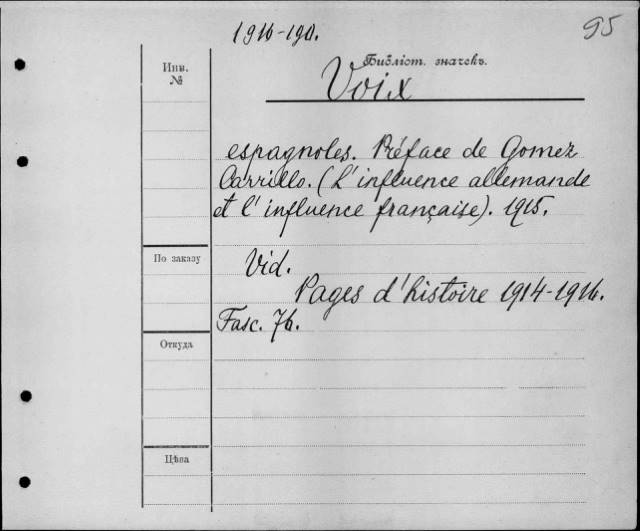 1916-190.
95
Инв.
№
Библіот. значекъ.
Voix
espagnoles. Préface de Gomez
Carrillo. (L'influence allemande
et l'influence française). 1915.
По заказу
Vid.
Pages d'histoire 1914-1916.
Fasc. 76.
Откуда
Цѣна